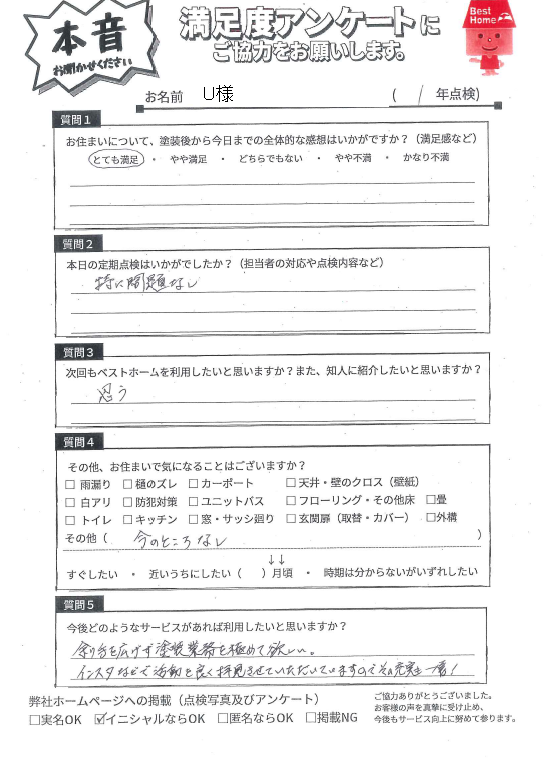 本音
お聞かせください
満足度アンケートに
ご協力をお願いします。
Best Home
お名前 U様 ( 1 年点検)
質問1
お住まいについて、塗装後から今日までの全体的な感想はいかがですか？（満足感など）
とても満足 ・ やや満足 ・ どちらでもない ・ やや不満 ・ かなり不満
質問2
本日の定期点検はいかがでしたか？（担当者の対応や点検内容など）
特に問題なし
質問3
次回もベストホームを利用したいと思いますか？また、知人に紹介したいと思いますか？
思う
質問4
その他、お住まいで気になることはございますか？
□ 雨漏り □ 樋のズレ □ カーポート □ 天井・壁のクロス（壁紙）
□ 白アリ □ 防犯対策 □ ユニットバス □ フローリング・その他床 □畳
□ トイレ □ キッチン □ 窓・サッシ廻り □ 玄関扉（取替・カバー） □外構
その他（ 今のところなし ）
↓↓
すぐしたい ・ 近いうちにしたい（ ）月頃 ・ 時期は分からないがいずれしたい
質問5
今後どのようなサービスがあれば利用したいと思いますか？
余り手を広げず塗装業務を極めて欲しい。
インスタなどで活動を良く拝見させていただいていますのでその充実も一番！
弊社ホームページへの掲載（点検写真及びアンケート）
□実名OK ☑イニシャルならOK □匿名ならOK □掲載NG
ご協力ありがとうございました。
お客様の声を真摯に受け止め、
今後もサービス向上に努めて参ります。